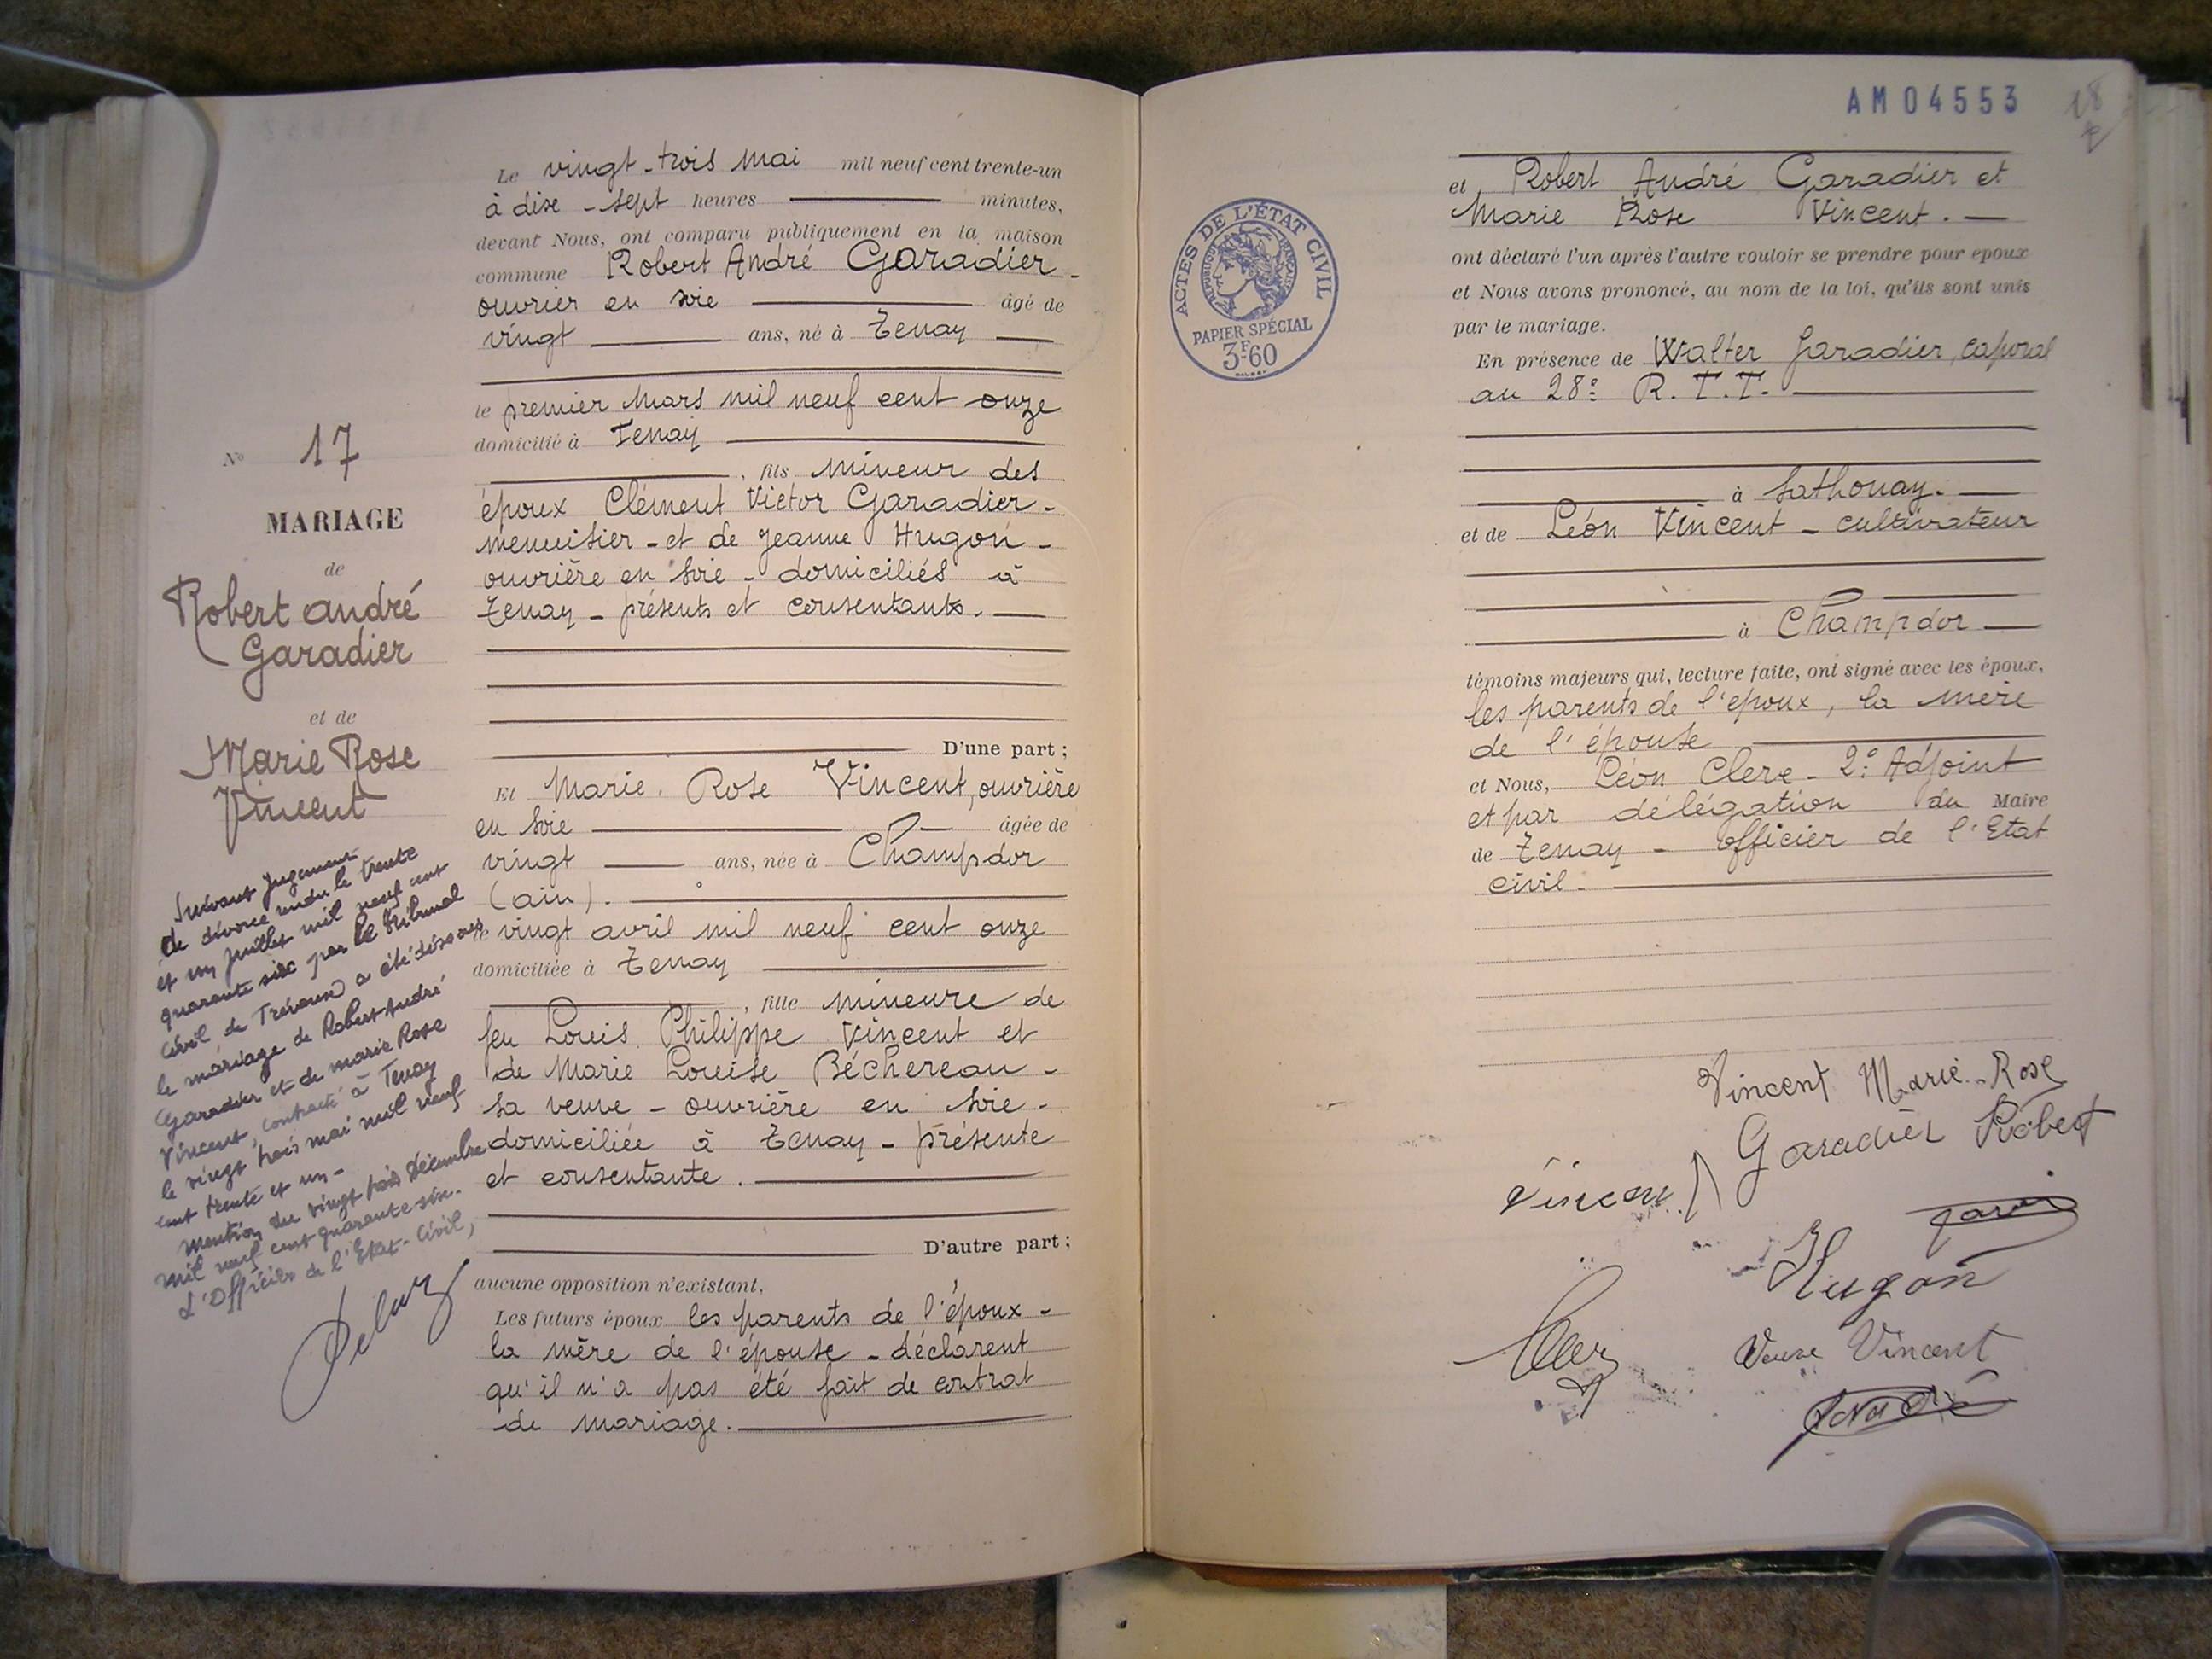 Le vingt-trois mai mil neuf cent trente-un
à dix-sept heures minutes,
devant Nous, ont comparu publiquement en la maison
commune Robert André Garadier -
ouvrier en soie âgé de
vingt ans, né à Tenay
le premier Mars mil neuf cent onze
domicilié à Tenay
, fils mineur des
époux Clément Victor Garadier -
menuisier - et de Jeanne Hugon -
ouvrière en soie - domiciliés à
Tenay - présents et consentants.
D'une part ;
Et Marie Rose Vincent, ouvrière
en soie âgée de
vingt ans, née à Champdor
(ain).
le vingt avril mil neuf cent onze
domiciliée à Tenay
, fille mineure de
feu Louis Philippe Vincent et
de Marie Louise Béchereau -
sa veuve - ouvrière en soie -
domiciliée à Tenay - présente
et consentante.
D'autre part ;
aucune opposition n'existant,
Les futurs époux les parents de l'époux -
la mère de l'épouse - déclarent
qu'il n'a pas été fait de contrat
de mariage.
No 17
MARIAGE
de
Robert andré
Garadier
et de
Marie Rose
Vincent
Suivant jugement
de divorce rendu le trente
et un juillet mil neuf cent
quarante six par le tribunal
civil de Trévoux a été dissous
le mariage de Robert André
Garadier et de Marie Rose
Vincent, contracté à Tenay
le vingt trois mai mil neuf
cent trente et un -
Mention du vingt trois décembre
mil neuf cent quarante-six.
L'Officier de l'Etat-Civil,
AM04553
18
ACTES DE L'ÉTAT CIVIL
RÉPUBLIQUE FRANÇAISE
PAPIER SPÉCIAL
3F60
et Robert André Garadier et
Marie Rose Vincent.
ont déclaré l'un après l'autre vouloir se prendre pour époux
et Nous avons prononcé, au nom de la loi, qu'ils sont unis
par le mariage.
En présence de Walter Garadier, caporal
au 28e R.T.T.
à Sathonay.
et de Léon Vincent - cultivateur
à Champdor
témoins majeurs qui, lecture faite, ont signé avec les époux,
les parents de l'époux, la mère
de l'épouse
et Nous, Léon Clerc - 2e Adjoint
et par délégation du Maire
de Tenay - officier de l'Etat
civil.
Vincent Marie-Rose
Garadier Robert
Vincent
Hugon
Veuve Vincent